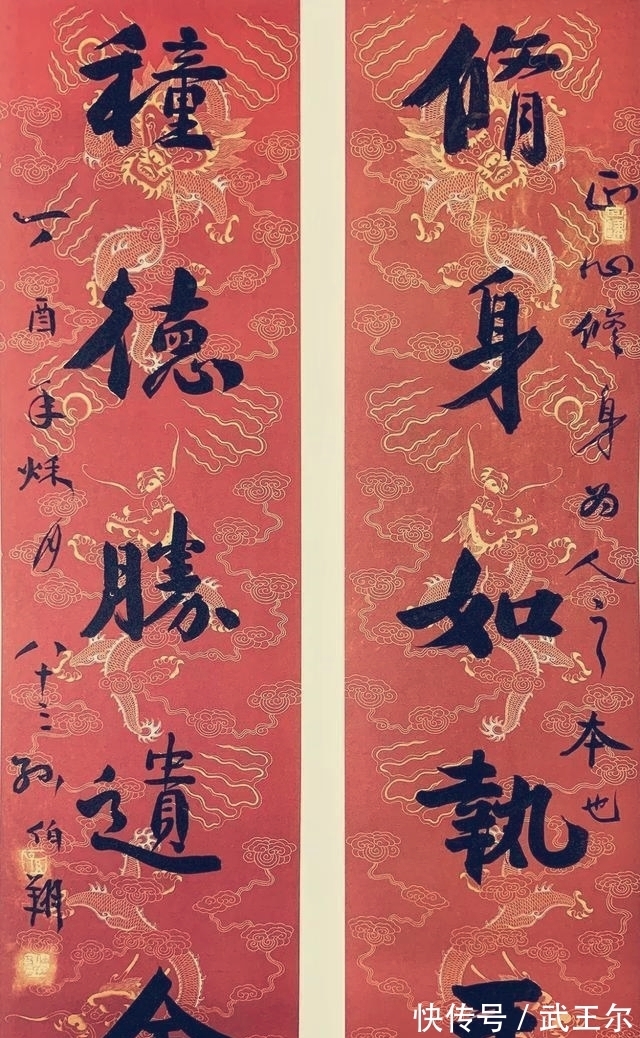 正心修身为人之本也
脩身如執
種德勝遺
丁酉年秌月 八十三孫伯翔
快传号/武王尔